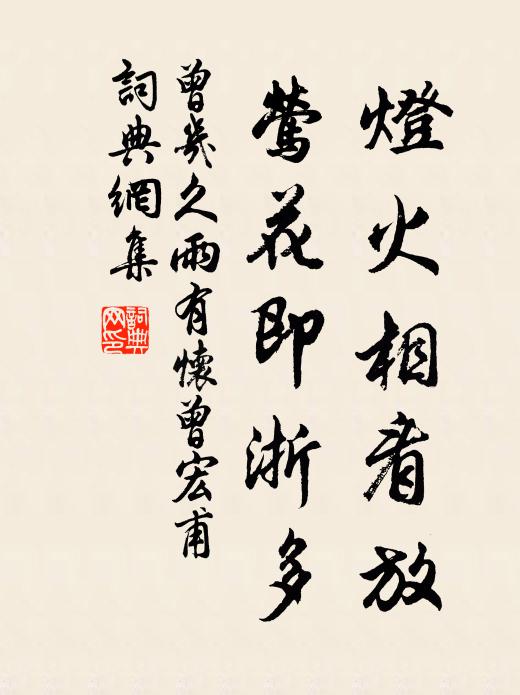 燈火相看放
鶯花即漸多
曾幾久雨有懷曾宏甫
詞典網集
詞典网印